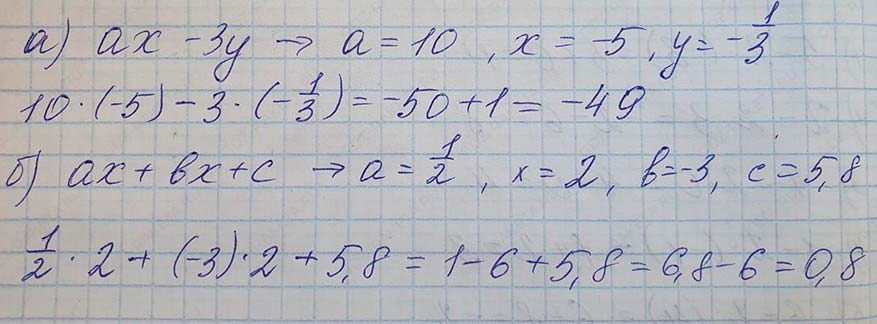 а) ax - 3y → a = 10, x = -5, y = -1/3
10 · (-5) - 3 · (-1/3) = -50 + 1 = -49
б) ax + bx + c → a = 1/2, x = 2, b = -3, c = 5,8
1/2 · 2 + (-3) · 2 + 5,8 = 1 - 6 + 5,8 = 6,8 - 6 = 0,8